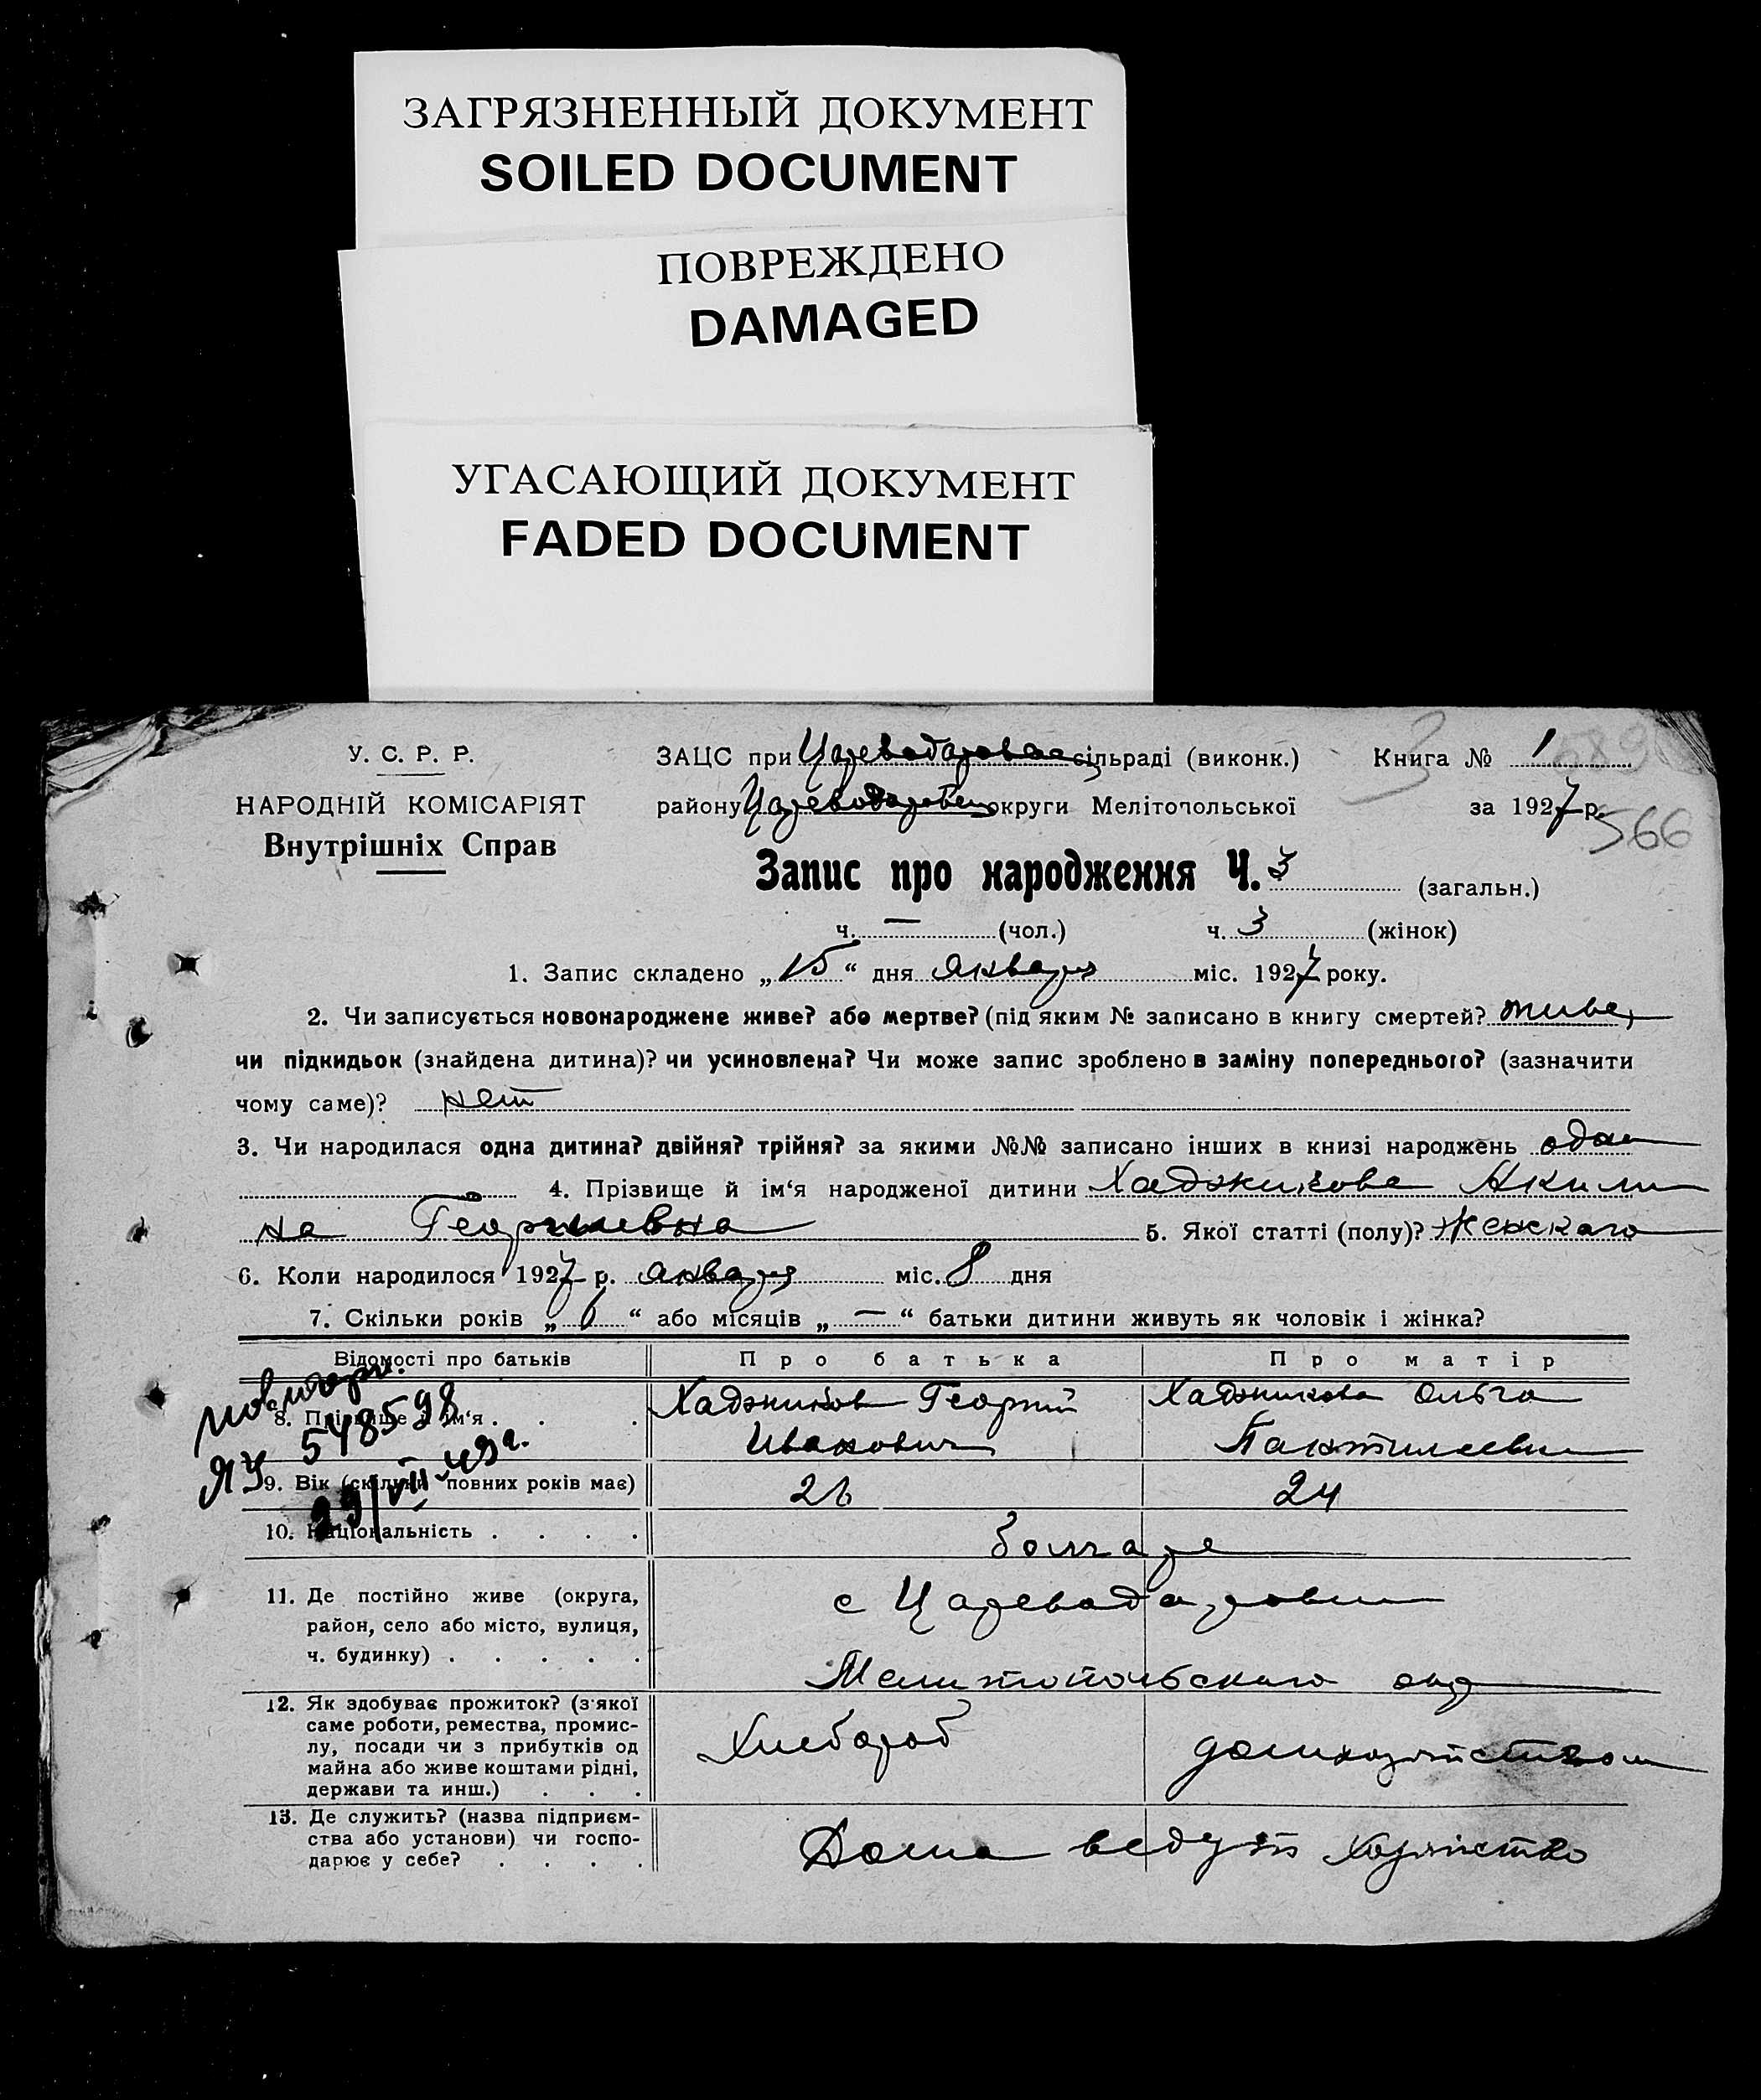 ЗАГРЯЗНЕННЫЙ ДОКУМЕНТ
SOILED DOCUMENT
ПОВРЕЖДЕНО
DAMAGED
УГАСАЮЩИЙ ДОКУМЕНТ
FADED DOCUMENT
У. С. Р. Р.
НАРОДНІЙ КОМІСАРІЯТ
Внутрішніх Справ
ЗАЦС при сільраді (виконк.) Книга № 1
району округи Мелітопольської за 1927 р.
566
Запис про народження Ч. 3 (загальн.)
ч. — (чол.) ч. 3 (жінок)
1. Запис складено „15“ дня января міс. 1927 року.
2. Чи записується новонароджене живе? або мертве? (під яким № записано в книгу смертей?
чи підкидьок (знайдена дитина)? чи усиновлена? Чи може запис зроблено в заміну попереднього? (зазначити
чому саме)? нет
3. Чи народилася одна дитина? двійня? трійня? за якими №№ записано інших в книзі народжень одна
4. Прізвище й ім‘я народженої дитини Хаджинова Акили
на Георгиевна 5. Якої статті (полу)? Женскаго
6. Коли народилося 1927 р. января міс. 8 дня
7. Скільки років „6“ або місяців „—“ батьки дитини живуть як чоловік і жінка?
Відомості про батьків Про батька Про матір
повторн.
ЯУ 548598
29/VII 49 г.
8. Прізвище й ім‘я . . . Хаджинов Георгий Хаджинова Ольга
Иванович
9. Вік (скільки повних років має) 26 24
10. Національність . . . . болгаре
11. Де постійно живе (округа,
район, село або місто, вулиця,
ч. будинку) . . . . .
с Царевадаровка
Мелитопольскаго окр
12. Як здобуває прожиток? (з якої
саме роботи, ремества, промис-
лу, посади чи з прибутків од
майна або живе коштами рідні,
держави та инш.) . . .
Хлебороб домхозяйством
13. Де служить? (назва підприєм-
ства або установи) чи госпо-
дарює у себе? . . . .
Дома ведут хозяйство